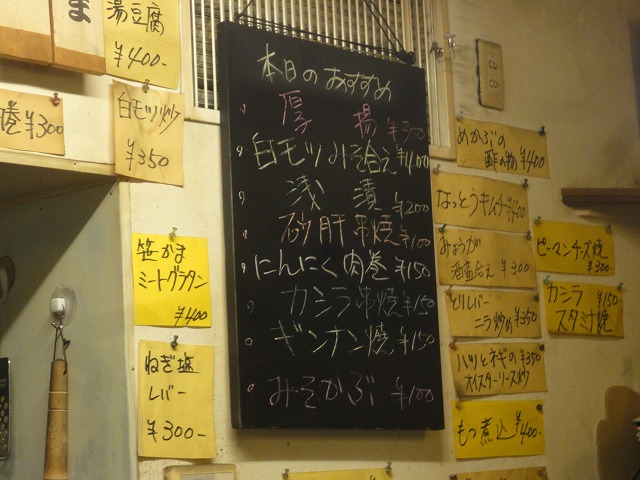 ま
湯豆腐
¥400-
巻 ¥300
白モツ炒
¥350
笹かま
ミートグラタン
¥400
ねぎ塩
レバー
¥300-
本日のおすすめ
厚揚 ¥300
白モツみそ合え ¥400
浅漬 ¥200
砂肝串焼 ¥100
にんにく肉巻 ¥150
カシラ串焼 ¥150
ギンナン焼 ¥150
みそかぶ ¥100
めかぶの
酢の物 ¥400
なっとうキムチ ¥400
みょうが
酒盗合え ¥300
とりレバー
ニラ炒め ¥350
ハツとネギの ¥350
オイスターソース炒
もつ煮込 ¥400-
ピーマンチーズ焼
¥300-
カシラ ¥150-
スタミナ焼